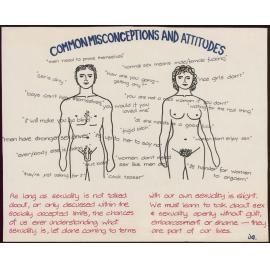 COMMON MISCONCEPTIONS AND ATTITUDES
"men need to prove themselves"
"normal sex means male/female fucking"
"being dirty"
"How are you going? getting any?"
"nice girls don't"
"boys can't help themselves"
"you are not a real woman if you don't"
"you would if you loved me"
"waiting for the real thing"
"it will make you go blind"
"as good as
"frigid bitch"
enjoy sex"
"men have stronger sex drives"
"it's up to her to say no"
"everybody else is
"women don't need sex like men do"
"it's harder for women to orgasm"
"they're just asking for it"
"cock teaser"
As long as sexuality is not talked
about, or only discussed within the
socially accepted limits, the chances
of us ever understanding what
sexuality is, let alone coming to terms
with our own sexuality is slight.
We must learn to talk about sex
& sexuality openly without guilt,
embarrassment or shame — they
are part of our lives.